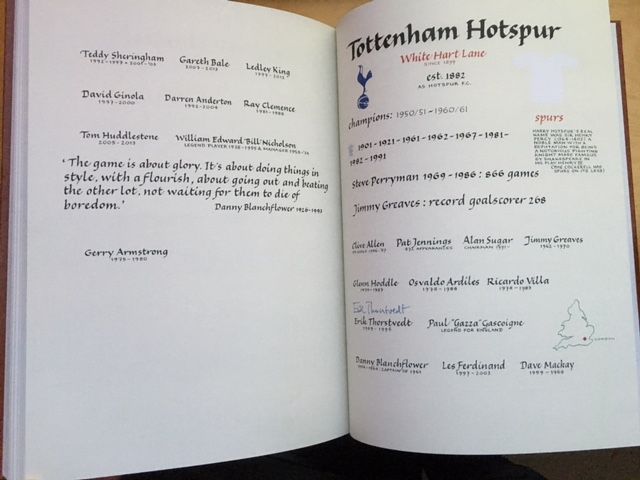 Teddy Sheringham Gareth Bale Ledley King
1992-1997 & 2001-'03 2007-2013 1999-2012
David Ginola Darren Anderton Ray Clemence
1997-2000 1992-2004 1981-1988
Tom Huddlestone William Edward 'Bill' Nicholson
2005-2013 LEGEND PLAYER 1938-1955 & MANAGER 1958-74
'The game is about glory. It's about doing things in
style, with a flourish, about going out and beating
the other lot, not waiting for them to die of
boredom.' Danny Blanchflower 1926-1993
Gerry Armstrong
1975-1980
Tottenham Hotspur
White Hart Lane
SINCE 1899
est. 1882
AS HOTSPUR F.C.
spurs
HARRY HOTSPUR'S REAL
NAME WAS SIR HENRY
PERCY (1364-1403) A
NOBLE MAN WITH A
REPUTATION FOR BEING
A NOTORIOUS FIGHTING
KNIGHT MADE FAMOUS
BY SHAKESPEARE IN
HIS PLAY HENRY IV
(THE COCKEREL HAS
SPURS ON ITS LEGS)
champions: 1950/51 - 1960/61
1901-1921-1961-1962-1967-1981-
1982-1991
Steve Perryman 1969-1986: 866 games
Jimmy Greaves: record goalscorer 268
Clive Allen Pat Jennings Alan Sugar Jimmy Greaves
APPEARANCES CHAIRMAN 1991- 1962-1970
Glenn Hoddle Osvaldo Ardiles Ricardo Villa
1975-1987 1978-1988 1978-1983
Erik Thorstvedt
Erik Thorstvedt Paul "Gazza" Gascoigne
1989-1996 LEGEND FOR ENGLAND
LONDON
Danny Blanchflower Les Ferdinand Dave Mackay
CAPTAIN OF 1961 1997-2003 1959-1968